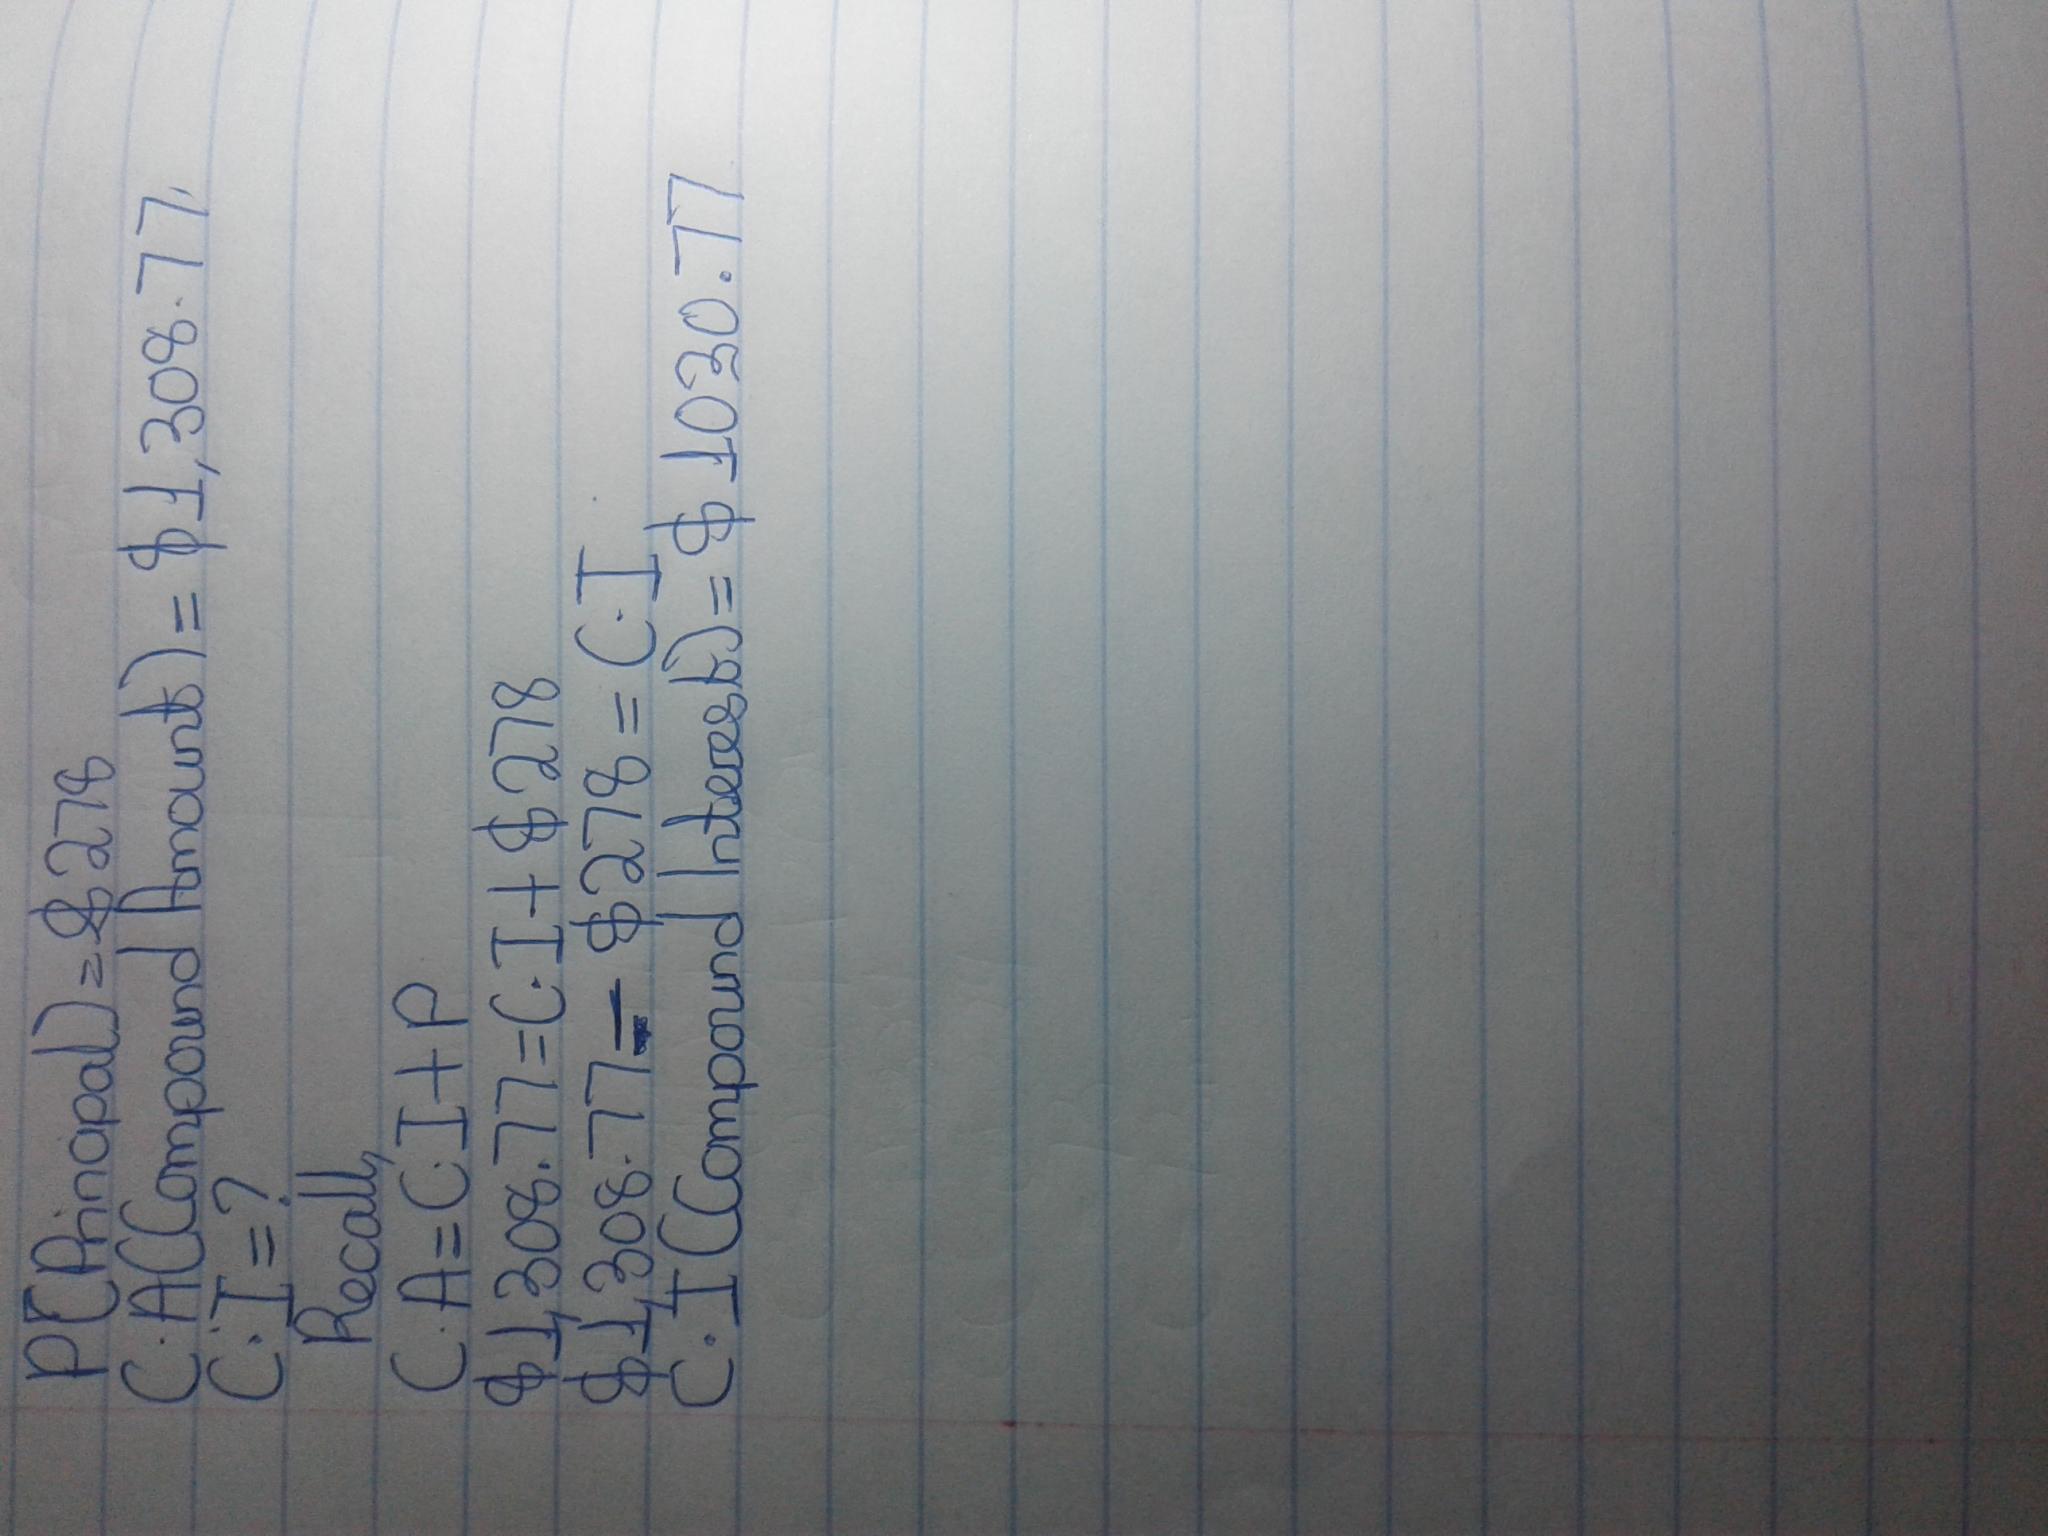 P(Principal)=$278
C.A(Compound Amount)=$1,308.77,
C.I=?
Recall,
C.A=C.I+P
$1,308.77=C.I+$278
$1,308.77-$278=C.I
C.I(Compound Interest)=$1030.77